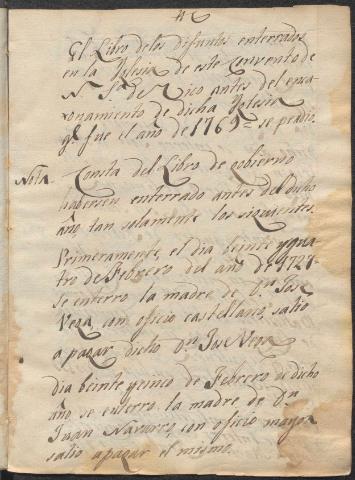 El Libro de los difuntos enterrados
en la Yglesia de este Convento de
N. Sª de Rico antes del
de dicha Yglesia
qᵉ fue el año de 1769 = se perdio.
Nota. Consta del Libro de gobierno
habersen enterrado antes del dicho
año tan solamente los siguientes.
Primeramente, el dia beinte y qua
tro de Febrero del año de 1727
se enterro la madre de Dⁿ Jos
Vega, con oficio castellano, salio
a pagar dicho Dⁿ Jos Vega
Dia beinte ycinco de Febrero de dicho
año se enterro, la madre de Dⁿ
Juan Navarro, con oficio mayor
salio a pagar el mismo.